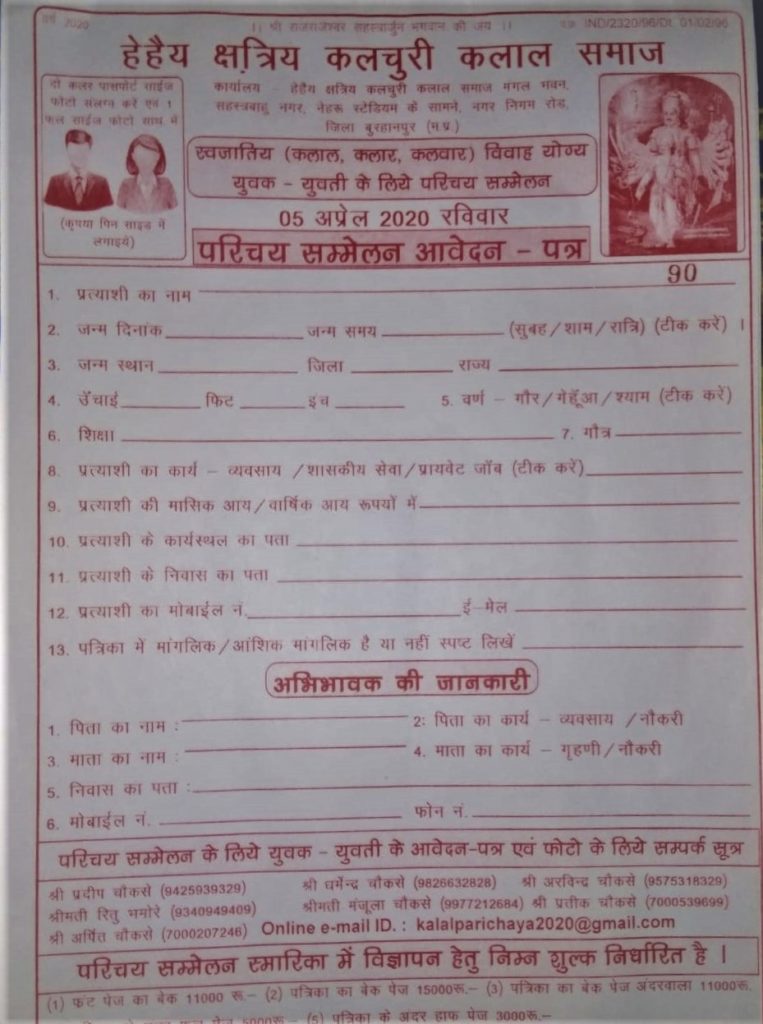 वर्ष 2020 || श्री राजराजेश्वर सहस्त्रार्जुन भगवान की जय || IND/2320/96/Dt. 01/02/96
हेहैय क्षत्रिय कलचुरी कलाल समाज
दो कलर पासपोर्ट साईज
फोटो संलग्न करें एवं 1
फुल साईज फोटो साथ में
(कृपया पिन साइड में
लगाइये)
कार्यालय - हेहैय क्षत्रिय कलचुरी कलाल समाज मंगल भवन,
सहस्त्रबाहु नगर, नेहरू स्टेडियम के सामने, नगर निगम रोड,
जिला बुरहानपुर (म.प्र.)
स्वजातिय (कलाल, कलार, कलवार) विवाह योग्य
युवक - युवती के लिये परिचय सम्मेलन
05 अप्रेल 2020 रविवार
परिचय सम्मेलन आवेदन - पत्र
90
1. प्रत्याशी का नाम
2. जन्म दिनांक जन्म समय (सुबह/शाम/रात्रि) (टीक करें) ।
3. जन्म स्थान जिला राज्य
4. उँचाई फिट इंच 5. वर्ण - गौर/गेहूँआ/श्याम (टीक करें)
6. शिक्षा 7. गौत्र
8. प्रत्याशी का कार्य - व्यवसाय /शासकीय सेवा/प्रायवेट जॉब (टीक करें)
9. प्रत्याशी की मासिक आय/वार्षिक आय रूपयों में
10. प्रत्याशी के कार्यस्थल का पता
11. प्रत्याशी के निवास का पता
12. प्रत्याशी का मोबाईल नं. ई-मेल
13. पत्रिका में मांगलिक/आंशिक मांगलिक है या नहीं स्पष्ट लिखें
अभिभावक की जानकारी
1. पिता का नाम : 2: पिता का कार्य - व्यवसाय /नौकरी
3. माता का नाम : 4. माता का कार्य - गृहणी/नौकरी
5. निवास का पता :
6. मोबाईल नं. फोन नं.
परिचय सम्मेलन के लिये युवक - युवती के आवेदन-पत्र एवं फोटो के लिये सम्पर्क सूत्र
श्री प्रदीप चौकसे (9425939329) श्री धर्मेन्द्र चौकसे (9826632828) श्री अरविन्द्र चौकसे (9575318329)
श्रीमती रितु भमोरे (9340949409) श्रीमती मंजूला चौकसे (9977212684) श्री प्रतीक चौकसे (7000539699)
श्री अर्पित चौकसे (7000207246) Online e-mail ID. : kalalparichaya2020@gmail.com
परिचय सम्मेलन स्मारिका में विज्ञापन हेतु निम्न शुल्क निर्धारित है ।
(1) फंट पेज का बेक 11000 रू.- (2) पत्रिका का बेक पेज 15000रू.- (3) पत्रिका का बेक पेज अंदरवाला 11000रू.
पेज 5000रू.- (5) पत्रिका के अंदर हाफ पेज 3000रू.-